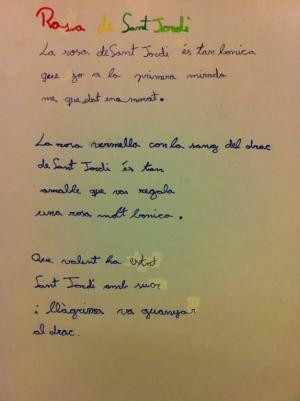 Rosa de Sant Jordi
La rosa de Sant Jordi és tan bonica
que jo a la primera mirada
me quedat enamorat.
La rosa vermella con la sang del drac
de Sant Jordi és tan
amable que vas regala
una rosa molt bonica.
Que valent ha estot
Sant Jordi amb suor
i llàgrima va guanyar
al drac.